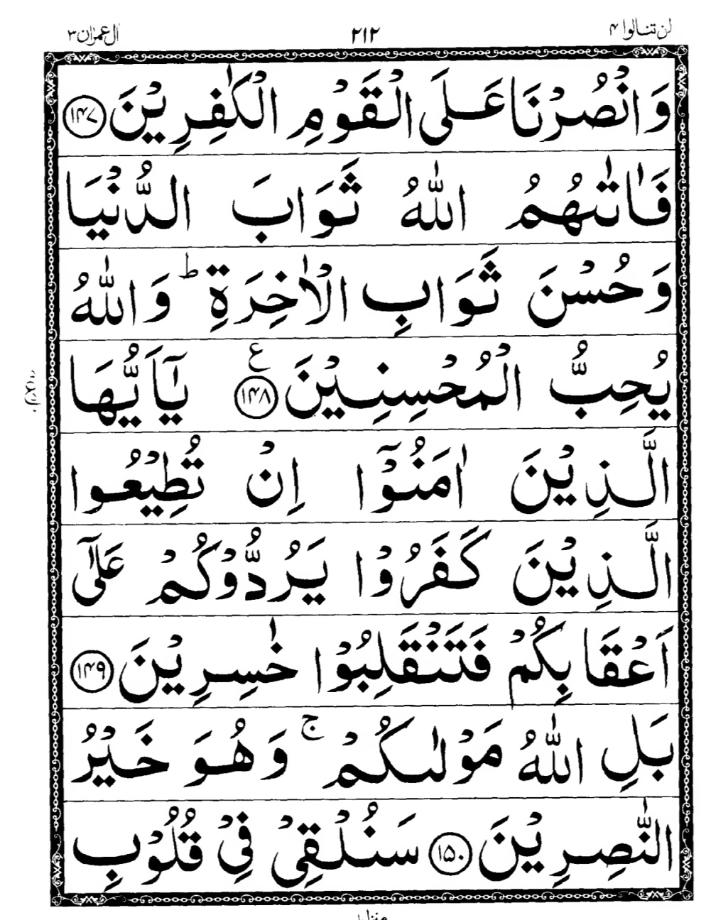 لن تنالوا ۴
۲۱۲
اٰل عمرٰن ۳
وَانْصُرْنَا عَلَى الْقَوْمِ الْكٰفِرِيْنَ ﴿۱۴۷﴾
فَاٰتٰىهُمُ اللّٰهُ ثَوَابَ الدُّنْيَا
وَحُسْنَ ثَوَابِ الْاٰخِرَةِ ؕ وَاللّٰهُ
يُحِبُّ الْمُحْسِنِيْنَ ﴿۱۴۸﴾ ع يٰۤاَيُّهَا
الَّذِيْنَ اٰمَنُوْۤا اِنْ تُطِيْعُوا
الَّذِيْنَ كَفَرُوْا يَرُدُّوْكُمْ عَلٰۤى
اَعْقَابِكُمْ فَتَنْقَلِبُوْا خٰسِرِيْنَ ﴿۱۴۹﴾
بَلِ اللّٰهُ مَوْلٰىكُمْ ۚ وَهُوَ خَيْرُ
النّٰصِرِيْنَ ﴿۱۵۰﴾ سَنُلْقِيْ فِيْ قُلُوْبِ
منزل ۱